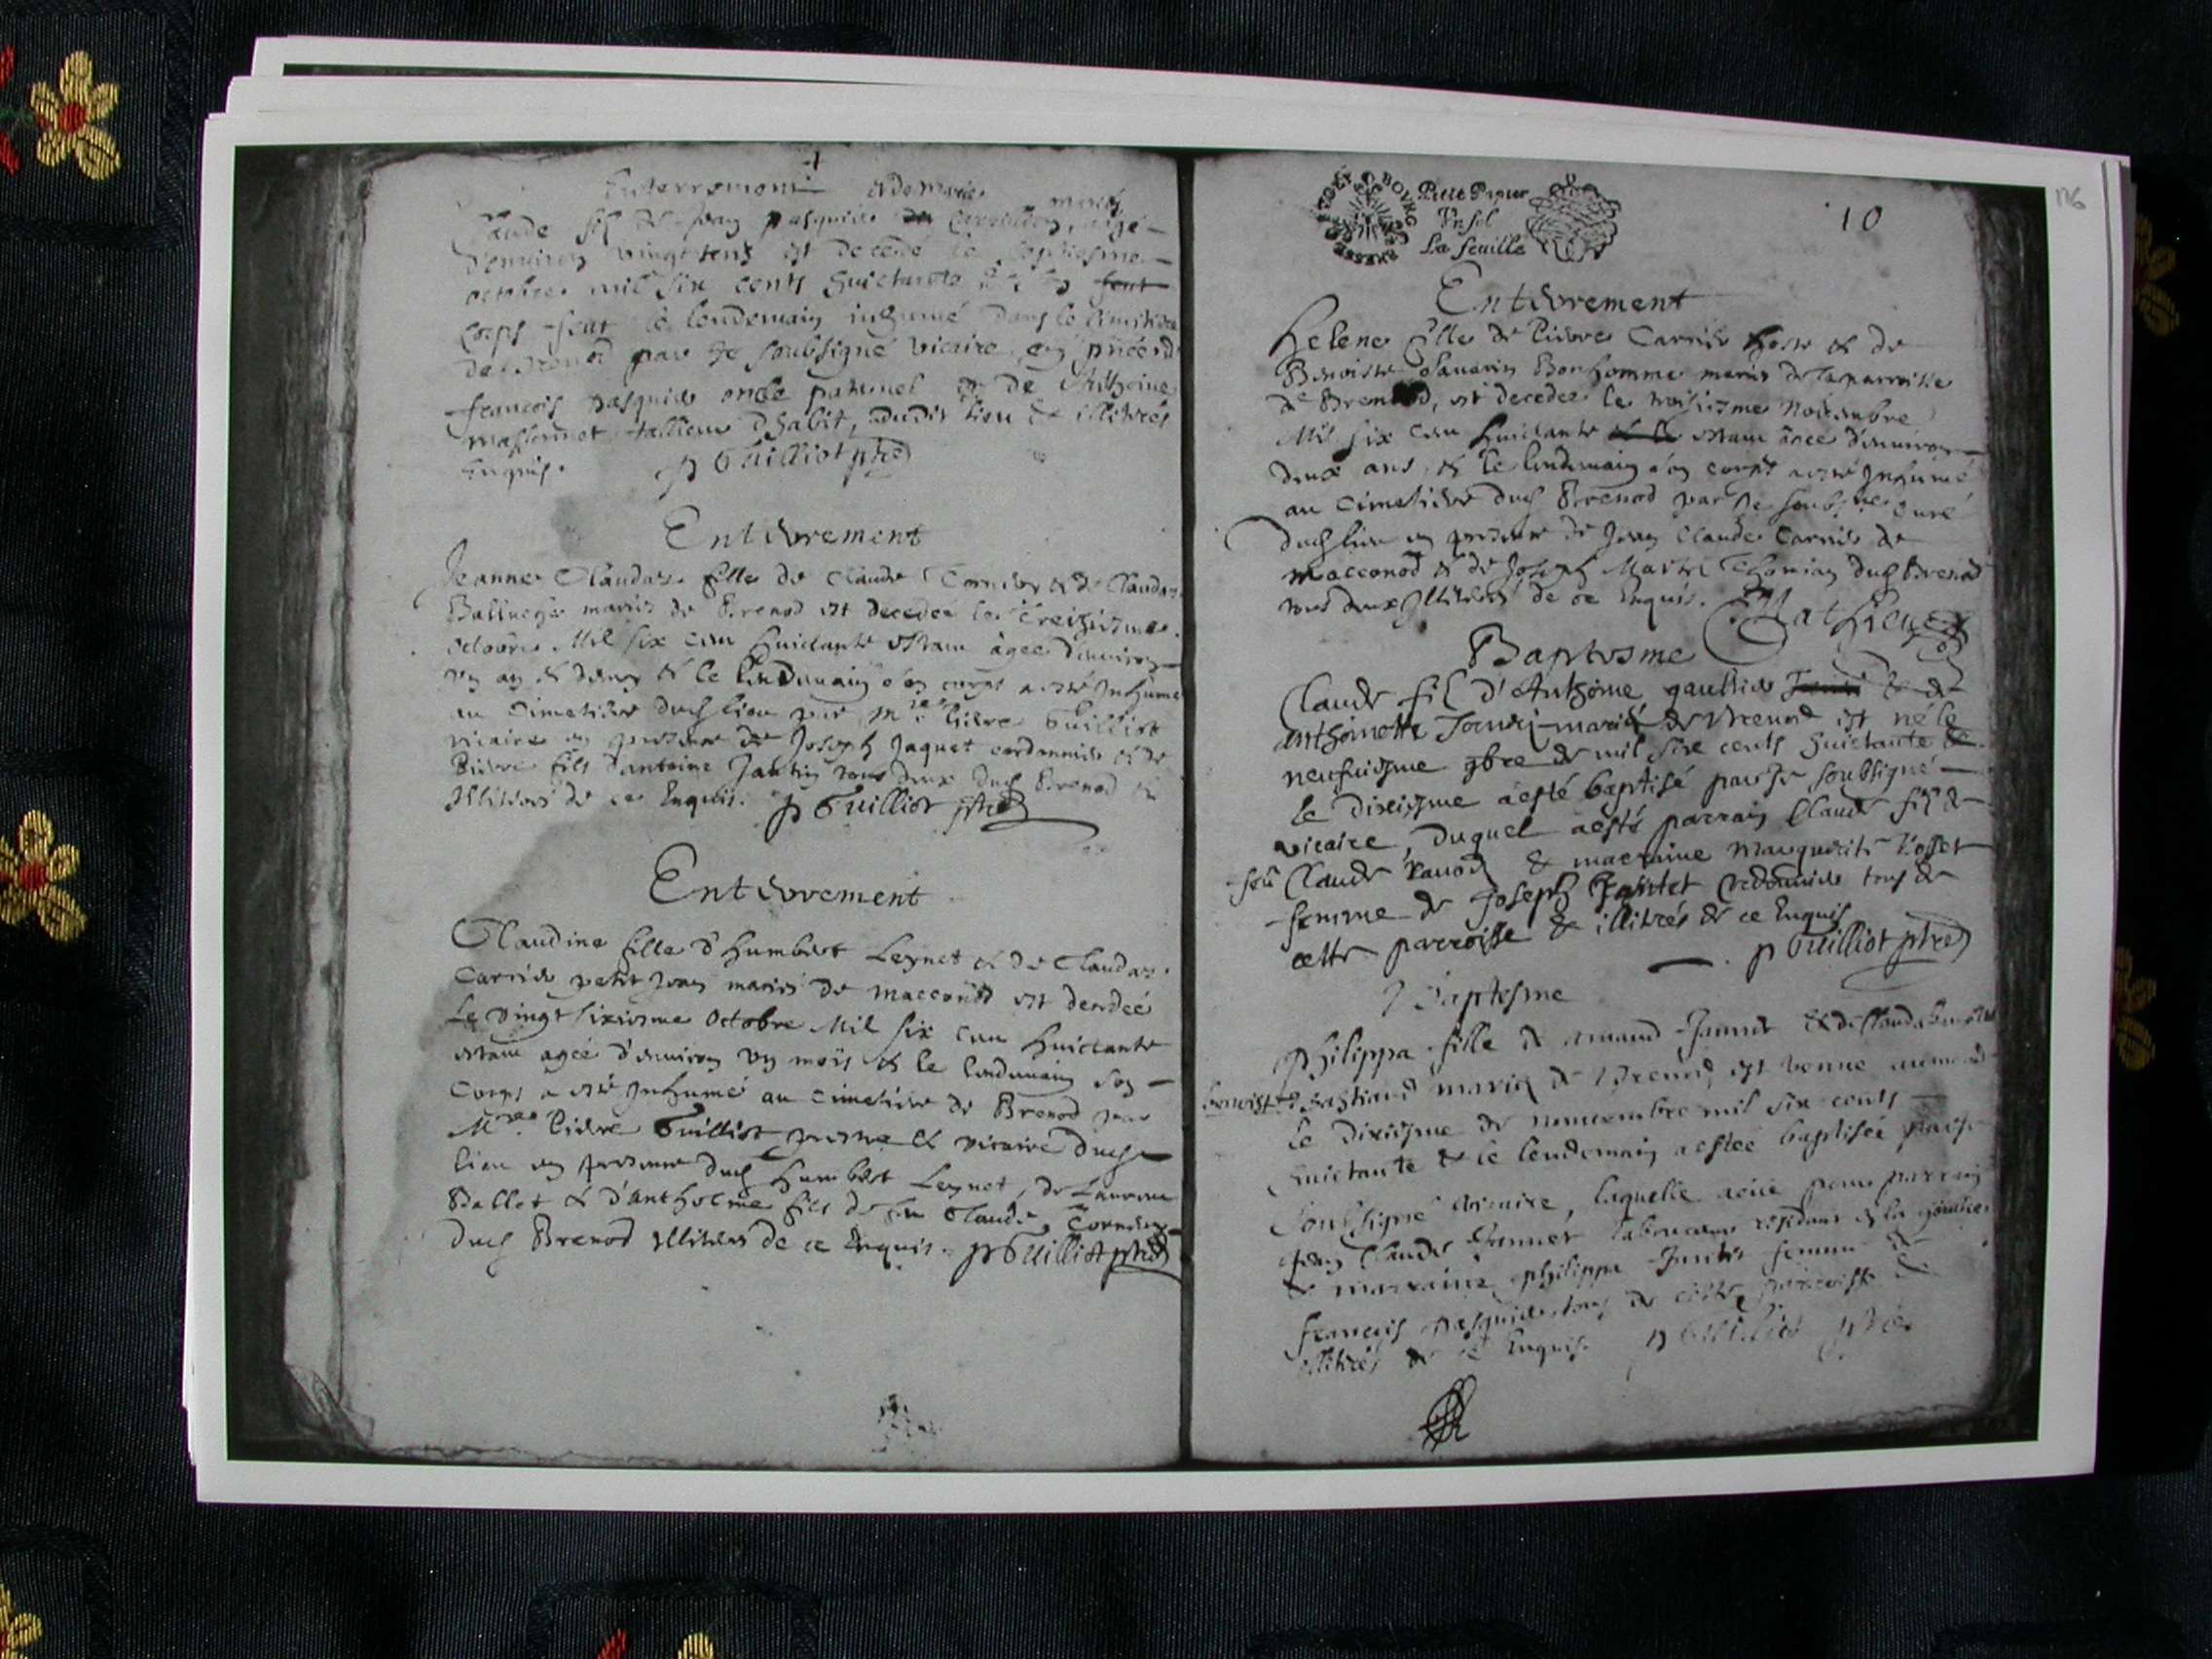 Enterrement et de Marie
Claude fil de Jean pasquier mariés aagé
d'environ vingt sens est decedé le septiesme
octobre mil six cents huictante son
corps feut le lendemain inhumé dans le cimitiere
de Brenod par Je soubsigné vicaire en pñce d
francois pasquier oncle paternel et de Anthoine
massonnet tallieur dhabit, dudit lieu & illiterés
enquis. p Guilliot ptre
Enterrement
Jeanne Claudaz fille de Claude Cornier & de Claudaz
mariés de Brenod est decedee le treiziesme
octobre Mil six cens huictante estant âgee d'environ
un an & demy & le lendemain son corps a esté Inhumé
au Cimetiere dud lieu par Mre Pierre Guilliot
vicaire en presence de Joseph Jaquet cordonnier & de
Pierre fils d'antoine Jantin tous deux dud Brenod &
Illiterés de ce Enquis. p Guilliot ptre
Enterrement
Claudine fille d'Humbert Leynet & de Claudaz
Carrier petit Jean mariés de macconod est decedeé
Le vingt sixiesme Octobre Mil six cens huictante
estant agée d'environ un mois & le lendemain son
Corps a esté Inhumé au Cimetiere de Brenod par
Mre Pierre Guilliot prestre & vicaire dud
lieu en presence dud Humbert Leynet, de Laurens
Ballet & d'Antholme fils de feu Claude Cornier
dud Brenod Illiteres de ce Enquis. p Guilliot ptre
Petit Papier
Un sol
La feuille
BOURG
BRESSE
10
116
Enterrement
Helene fille de Pierre Carrier & de
Benoiste Savarin Bonhomme mariés de la parroisse
de Brenod, est decedee le troisiesme Novembre
Mil six cens huictante estant âgee d'environ
deux ans, & le lendemain son corps a esté Inhumé
au Cimetiere dud Brenod par Je soubsne curé
dud lieu en presence de Jean Claude Carrier de
Macconod & de Joseph Maitre dud Brenod
tous deux Illiterés de ce Enquis. Mathieu
Baptesme
Claude fil d'Anthoine gaultier & de
anthoinette mariés de Brenod est né le
neufviesme 9bre de mil six cents huictante &
le dixiesme a esté baptisé par Je soubsigné
vicaire, duquel a esté parrain Claude fil de
feu Claude Ravod & marraine marguerite
femme de Joseph cordonnier tous de
cette parroisse & illiterés de ce Enquis
p Guilliot ptre
Baptesme
Philippa fille de Jannet & de Claudaz
benoist mariés de Brenod est venue au monde
le dixiesme de nouvembre mil six cents
huictante & le lendemain a estée baptisée par Je
soubsigné vicaire, laquelle a eüe pour parrain
Jean Claude Jannet laboureur residant
& marraine philippa femme de
francois pasquier tous de cette parroisse &
illiterés de ce Enquis. p Guilliot ptre